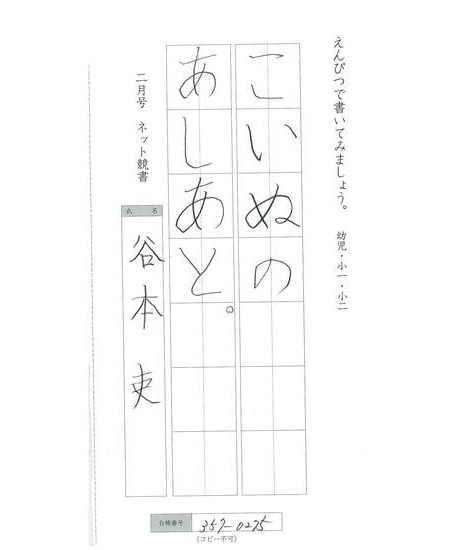 えんぴつで書いてみましょう。 幼児・小一・小二
こいぬの
あしあと。
二月号 ネット競書
氏名
谷本 吏
台帳番号 357-0275
(コピー不可)